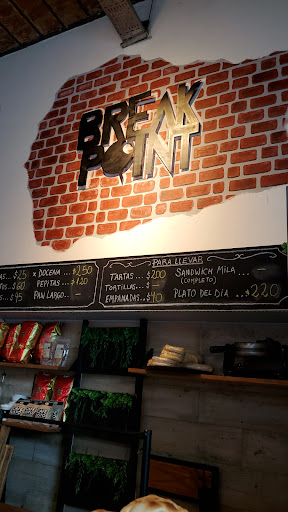 BREAK
POINT
PARA LLEVAR
...$25 x DOCENA...$250 TARTAS...$200 SANDWICH MILA...—
$60 PEPITAS...$120 TORTILLAS...— (COMPLETO)
...$45 PAN LARGO...— EMPANADAS...$40 PLATO DEL DIA...$220